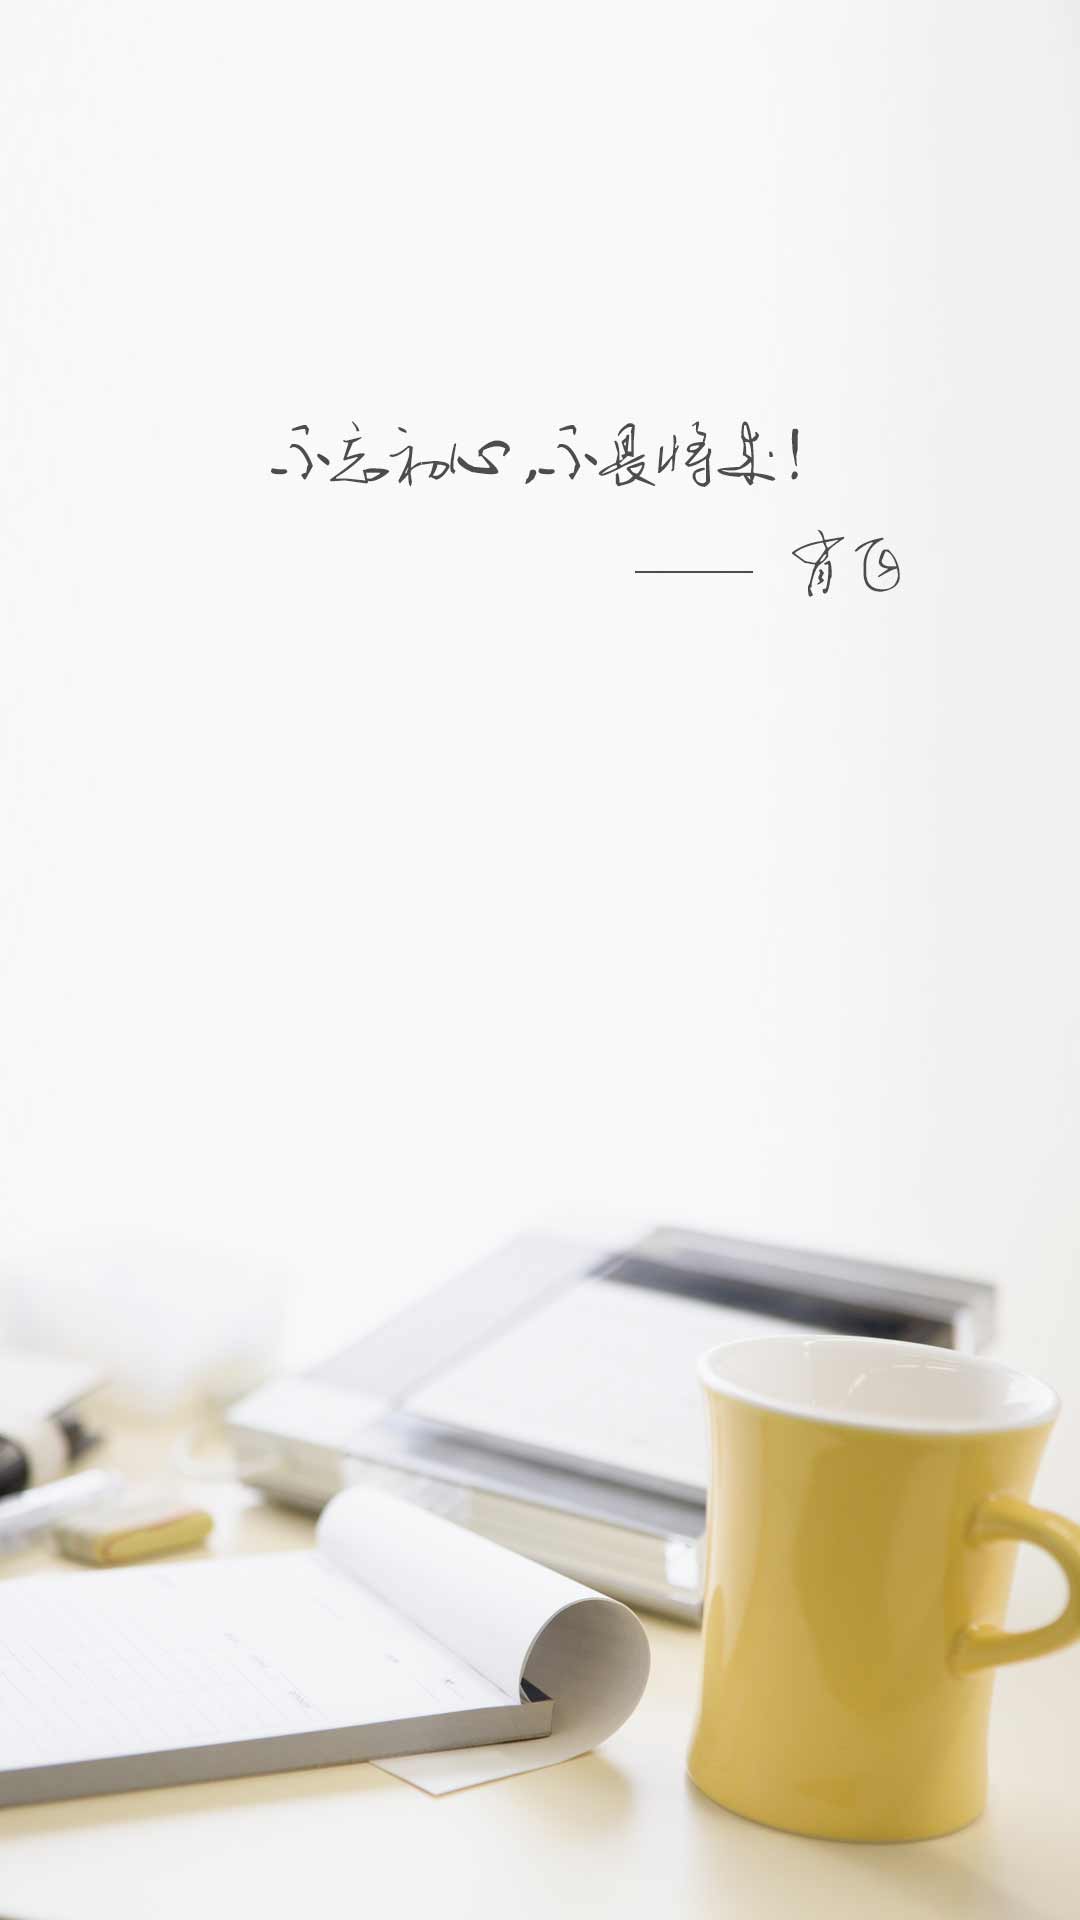 不忘初心，不畏将来！
——